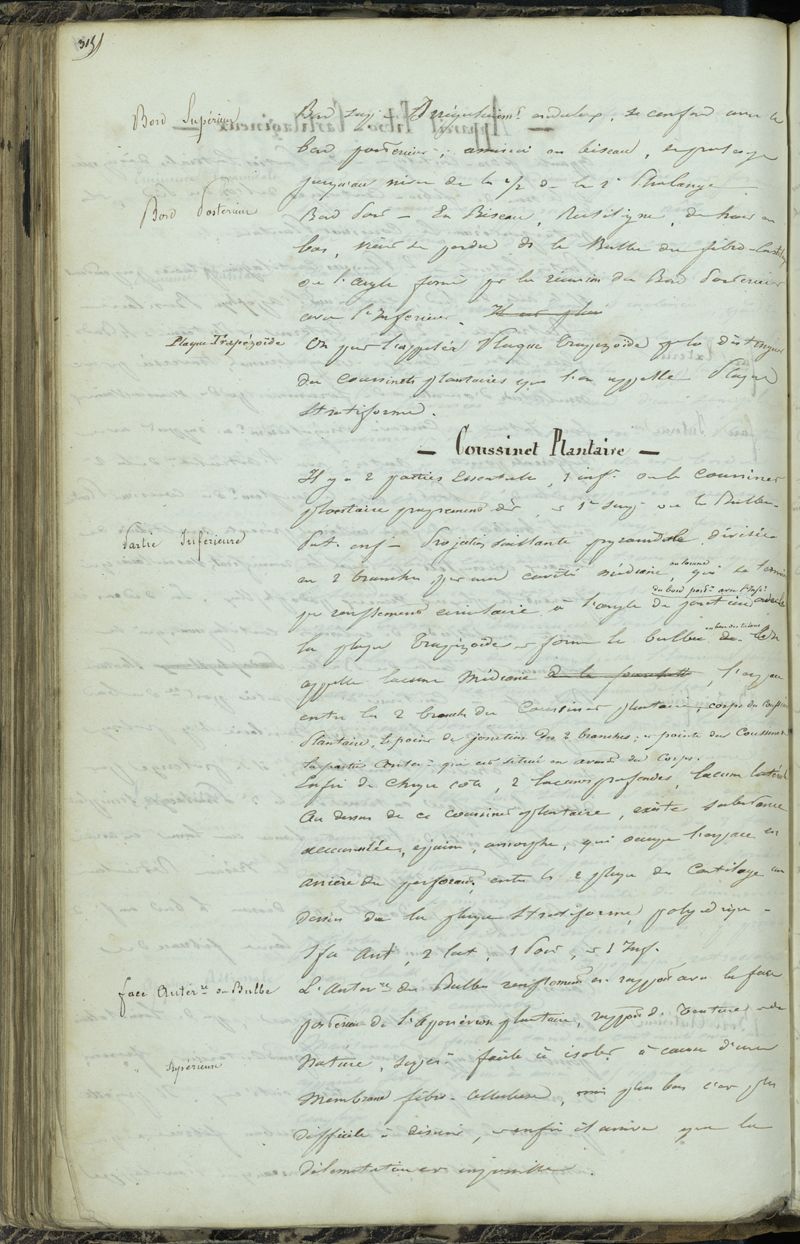 Bord Supérieur
Bord sup. – Irrégulièremt onduleux, se confond avec le
bord postérieur, aminci en biseau, se prolonge
jusqu'au niveau de la 1/2 de la 2e Phalange.
Bord Postérieur
Bord Post – En Biseau, Rectiligne, de haut en
bas, vient se perdre ds le Bulbe du fibro-Cartilage
ou l'angle formé par la réunion du Bord Postérieur
avec l'Inferieur.
Plaque Trapézoïde
On peut l'appeler Plaque Trapezoïde pr la distinguer
du coussinet plantaire que l'on appelle Plaque
Stratiforme.
– Coussinet Plantaire –
Il y a 2 parties Essentielles, 1 infre ou le coussinet
plantaire proprement dit, et 1e supre ou le Bulbe.
Partie Inférieure
Part. inf – Projection saillante pyramidale, divisée
en 2 branches par une cavité médiane, qui se termine
par renflement circulaire à l'angle de jonction
du bord postr avec l'Infr
la plaque Trapézoïde et forme le bulbe
appelle lacune Médiane de la fourchette, l'espace
entre les 2 branches du Coussinet plantaire, corps du Coussinet
Plantaire, le point de jonction des 2 branches; et pointe du Coussinet
la partie Anterre qui est situé en avant du Corps.
Enfin de chaque coté, 2 lacunes profondes, lacune latérale
Au dessus de ce coussinet plantaire, existe substance
accumulée, épaisse, amorphe, qui occupe l'espace en
arrière du perforant, entre les 2 plaques du Cartilage au
dessus de la plaque Stratiforme, polyedrique –
1 fa Ant, 2 lat, 1 Post, et 1 Inf.
face Anterre du Bulbe
L'Anterre du Bulbe renflement en rapport avec la face
postérieure de l'Aponévrose plantaire, rapport de Texture et de
" Supérieure
Nature, super facile à isoler à cause d'une
Membrane fibro-Celluleuse, mais plus bas c'est plus
difficile à désunir, et enfin il arrive que la
délimitation est impossible.